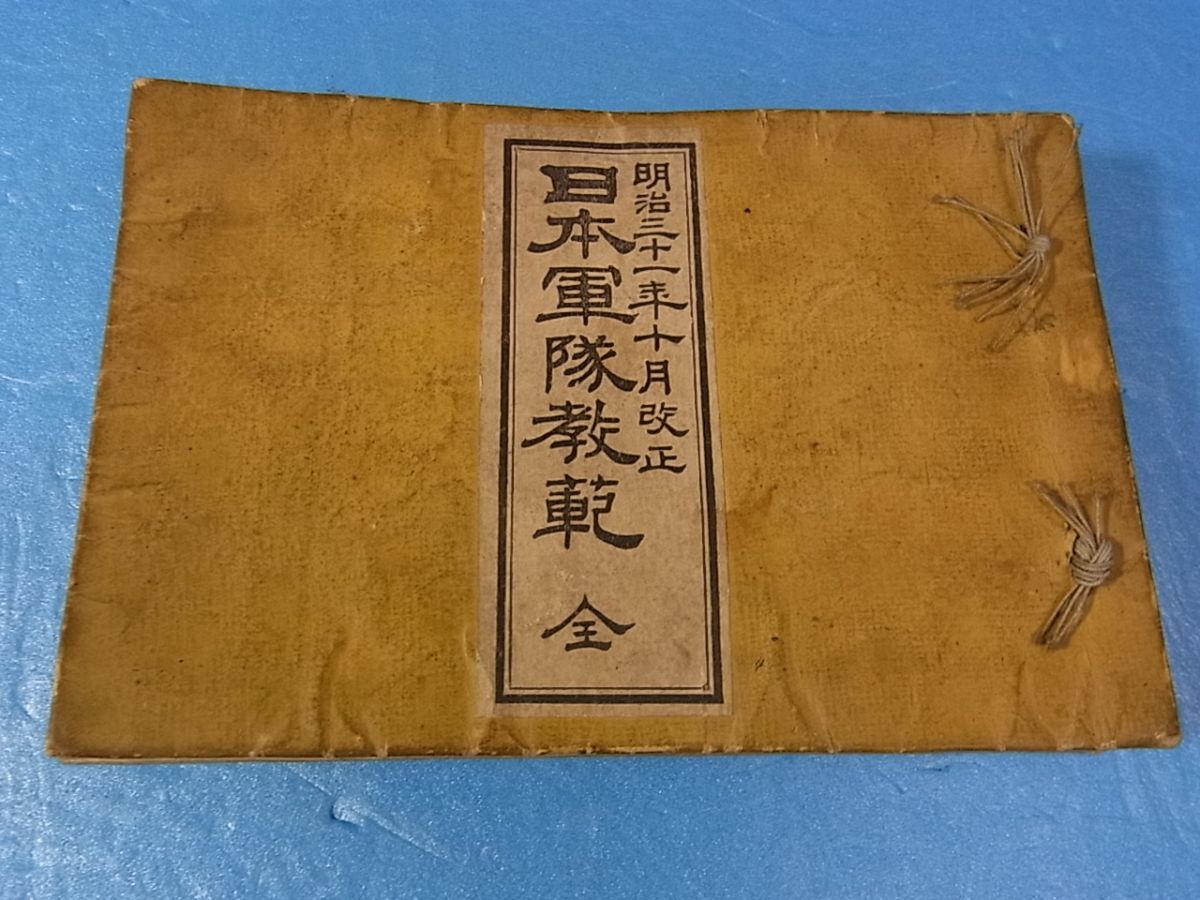 明治三十一年十月改正
日本軍隊教範 全